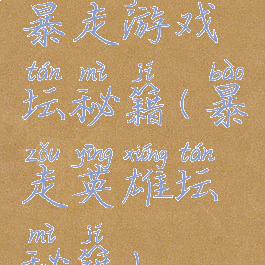 暴走游戏
tán mì jí bào
坛秘籍(暴
zǒu yīng xióng tán
走英雄坛
mì jí
秘籍)